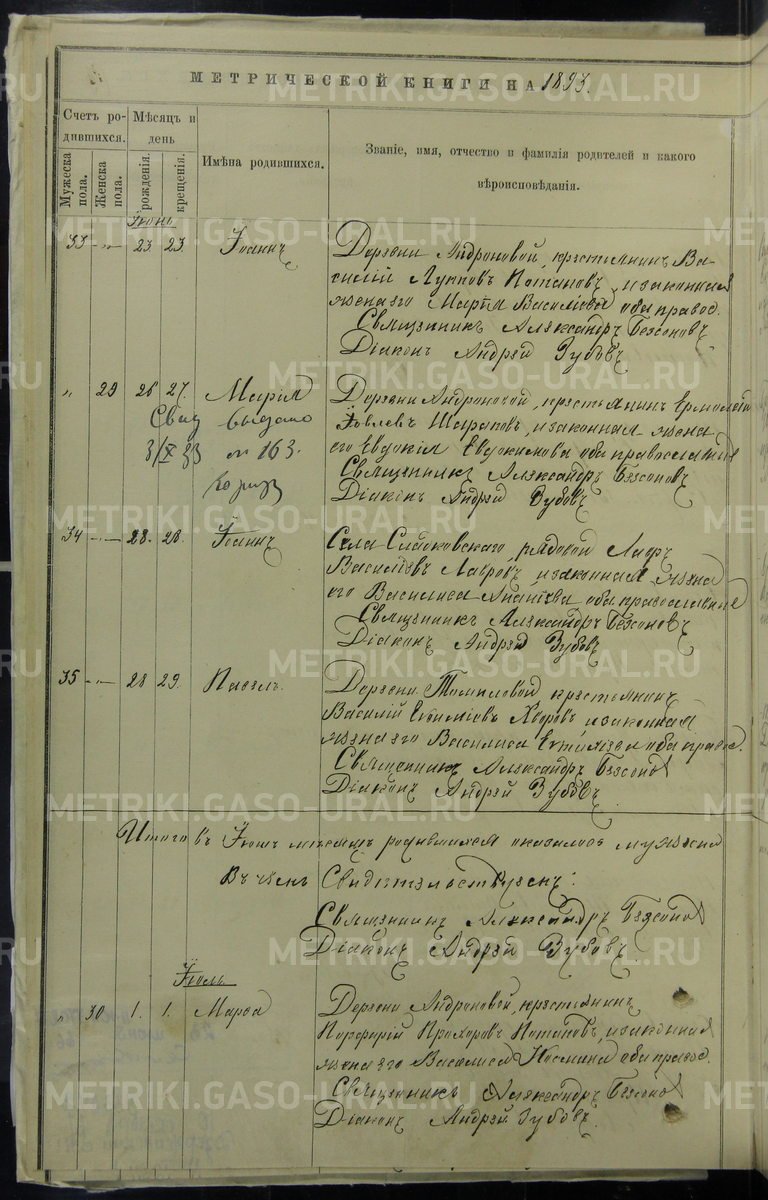 МЕТРИЧЕСКОЙ КНИГИ НА 1893.
Счетъ ро-
дившихся.
Мѣсяцъ и
день
Имена родившихся.
Званіе, имя, отчество и фамилія родителей и какого
вѣроисповѣданія.
Мужеска
пола.
Женска
пола.
рожденія.
крещенія.
Іюнь
33 - „ - 23 23 Іоаннъ Деревни Андроновой, крестьянинъ Ва-
силій Лупповъ Потаповъ, и законная
жена его Марѳа Василіева, оба правос.
Священникъ Александръ Безсоновъ
Діаконъ Андрей Зубовъ
„ 29 26 27. Марія Деревни Андроновой, крестьянинъ Ермолай
Свид выдано Іовлевъ Шараповъ, и законная жена
3/X 33 № 163. его Евдокія Евдокимова оба православные
Священникъ Александръ Безсоновъ
Діаконъ Андрей Зубовъ
34 - „ - 28 28 Іоаннъ Села Сладковскаго, рядовой Лавръ
Василіевъ Лавровъ, и законная жена
его Василиса Ананіева, оба православные
Священникъ Александръ Безсоновъ
Діаконъ Андрей Зубовъ
35 - „ - 28 29. Павелъ. Деревни Томиловой крестьянинъ
Василій Евѳиміевъ и законная
жена его Василиса оба правос.
Священникъ Александръ Безсонов
Діаконъ Андрей Зубовъ
Итого въ Іюнѣ мѣсяцѣ родившихся оказалось мужеска
Въ чемъ Свидетельствуемъ:
Священникъ Александръ Безсонов
Діаконъ Андрей Зубовъ.
Іюль
„ 30 1. 1. Марѳа Деревни Андроновой, крестьянинъ
Порфирій Прохоровъ Потаповъ, и законная
жена его Василиса Косьмина оба правос.
Священникъ Александръ Безсонов
Діаконъ Андрей Зубовъ.
METRIKI.GASO-URAL.RU